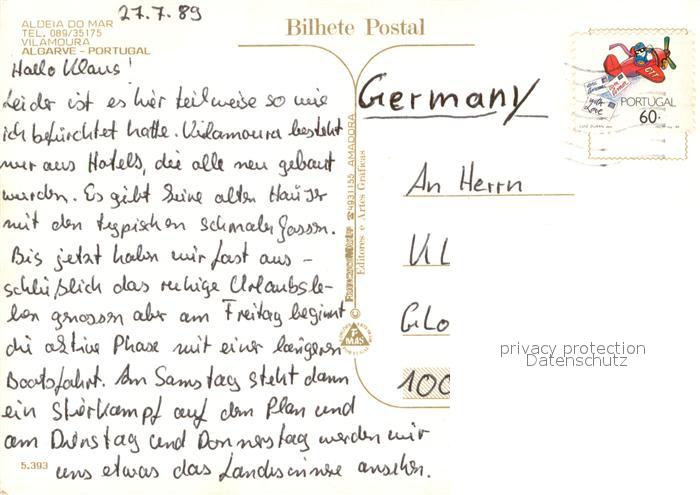 27.7.89
ALDEIA DO MAR
TEL. 089/35175
VILAMOURA
ALGARVE - PORTUGAL
Bilhete Postal
Hallo Klaus!
Leider ist es hier teilweise so wie
ich befürchtet hatte. Vilamoura besteht
nur aus Hotels, die alle neu gebaut
wurden. Es gibt keine alten Häuser
mit den typischen schmalen Gassen.
Bis jetzt haben wir fast aus-
schließlich das ruhige Urlaubsle-
ben genossen aber am Freitag beginnt
die aktive Phase mit einer längeren
Bootsfahrt. Am Samstag steht dann
ein Stierkampf auf dem Plan und
am Dienstag und Donnerstag werden wir
uns etwas das Landesinnere ansehen.
5.393
4931155 AMADORA
Editores e Artes Gráficas
Germany
An Herrn
Kl
Glo
100
PORTUGAL
60.
privacy protection
Datenschutz